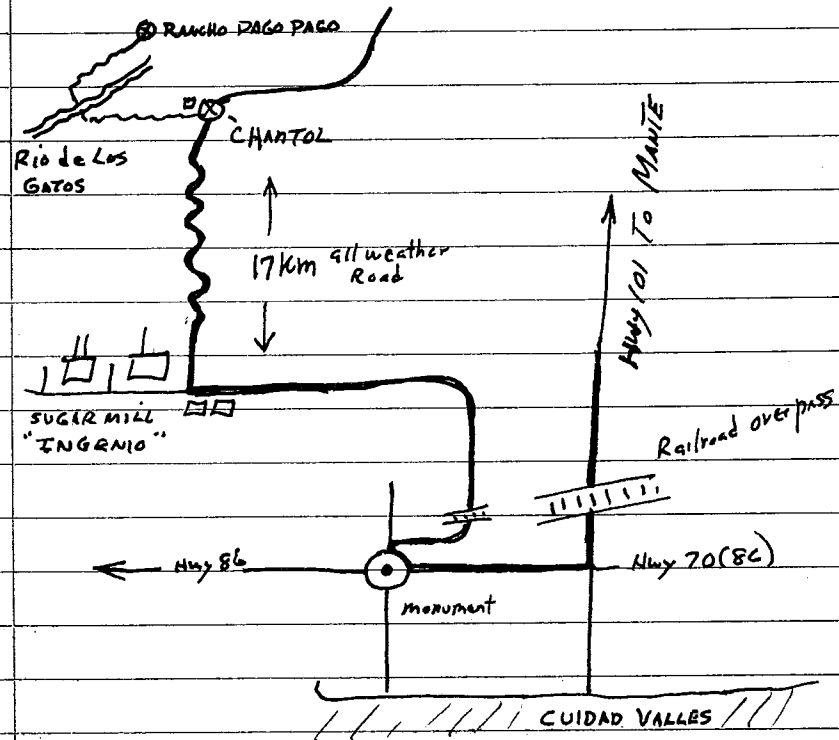 RANCHO PAGO PAGO
CHANTOL
Rio de Los
GATOS
17 Km all weather
Road
Hwy 101 To MANTE
SUGAR MILL
"INGENIO"
Railroad overpass
Hwy 86
Hwy 70(86)
monument
CUIDAD VALLES